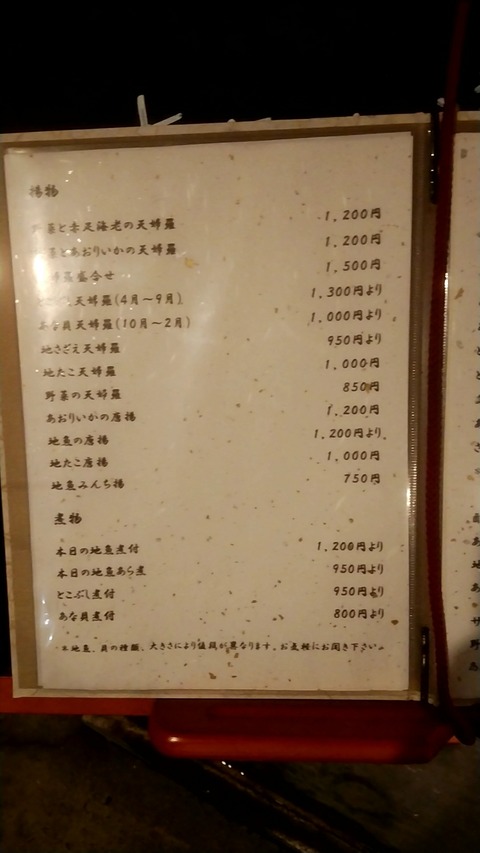 揚物
野菜と赤足海老の天婦羅 1,200円
野菜とあおりいかの天婦羅 1,200円
天婦羅盛合せ 1,500円
とこぶし天婦羅(4月〜9月) 1,300円より
あな貝天婦羅(10月〜2月) 1,000円より
地さざえ天婦羅 950円より
地たこ天婦羅 1,000円
野菜の天婦羅 850円
あおりいかの唐揚 1,200円
地魚の唐揚 1,200円より
地たこ唐揚 1,000円
地魚みんち揚 750円
煮物
本日の地魚煮付 1,200円より
本日の地魚あら煮 950円より
とこぶし煮付 950円より
あな貝煮付 800円より
※地魚、貝の種類、大きさにより値段が異なります。お気軽にお聞き下さい。